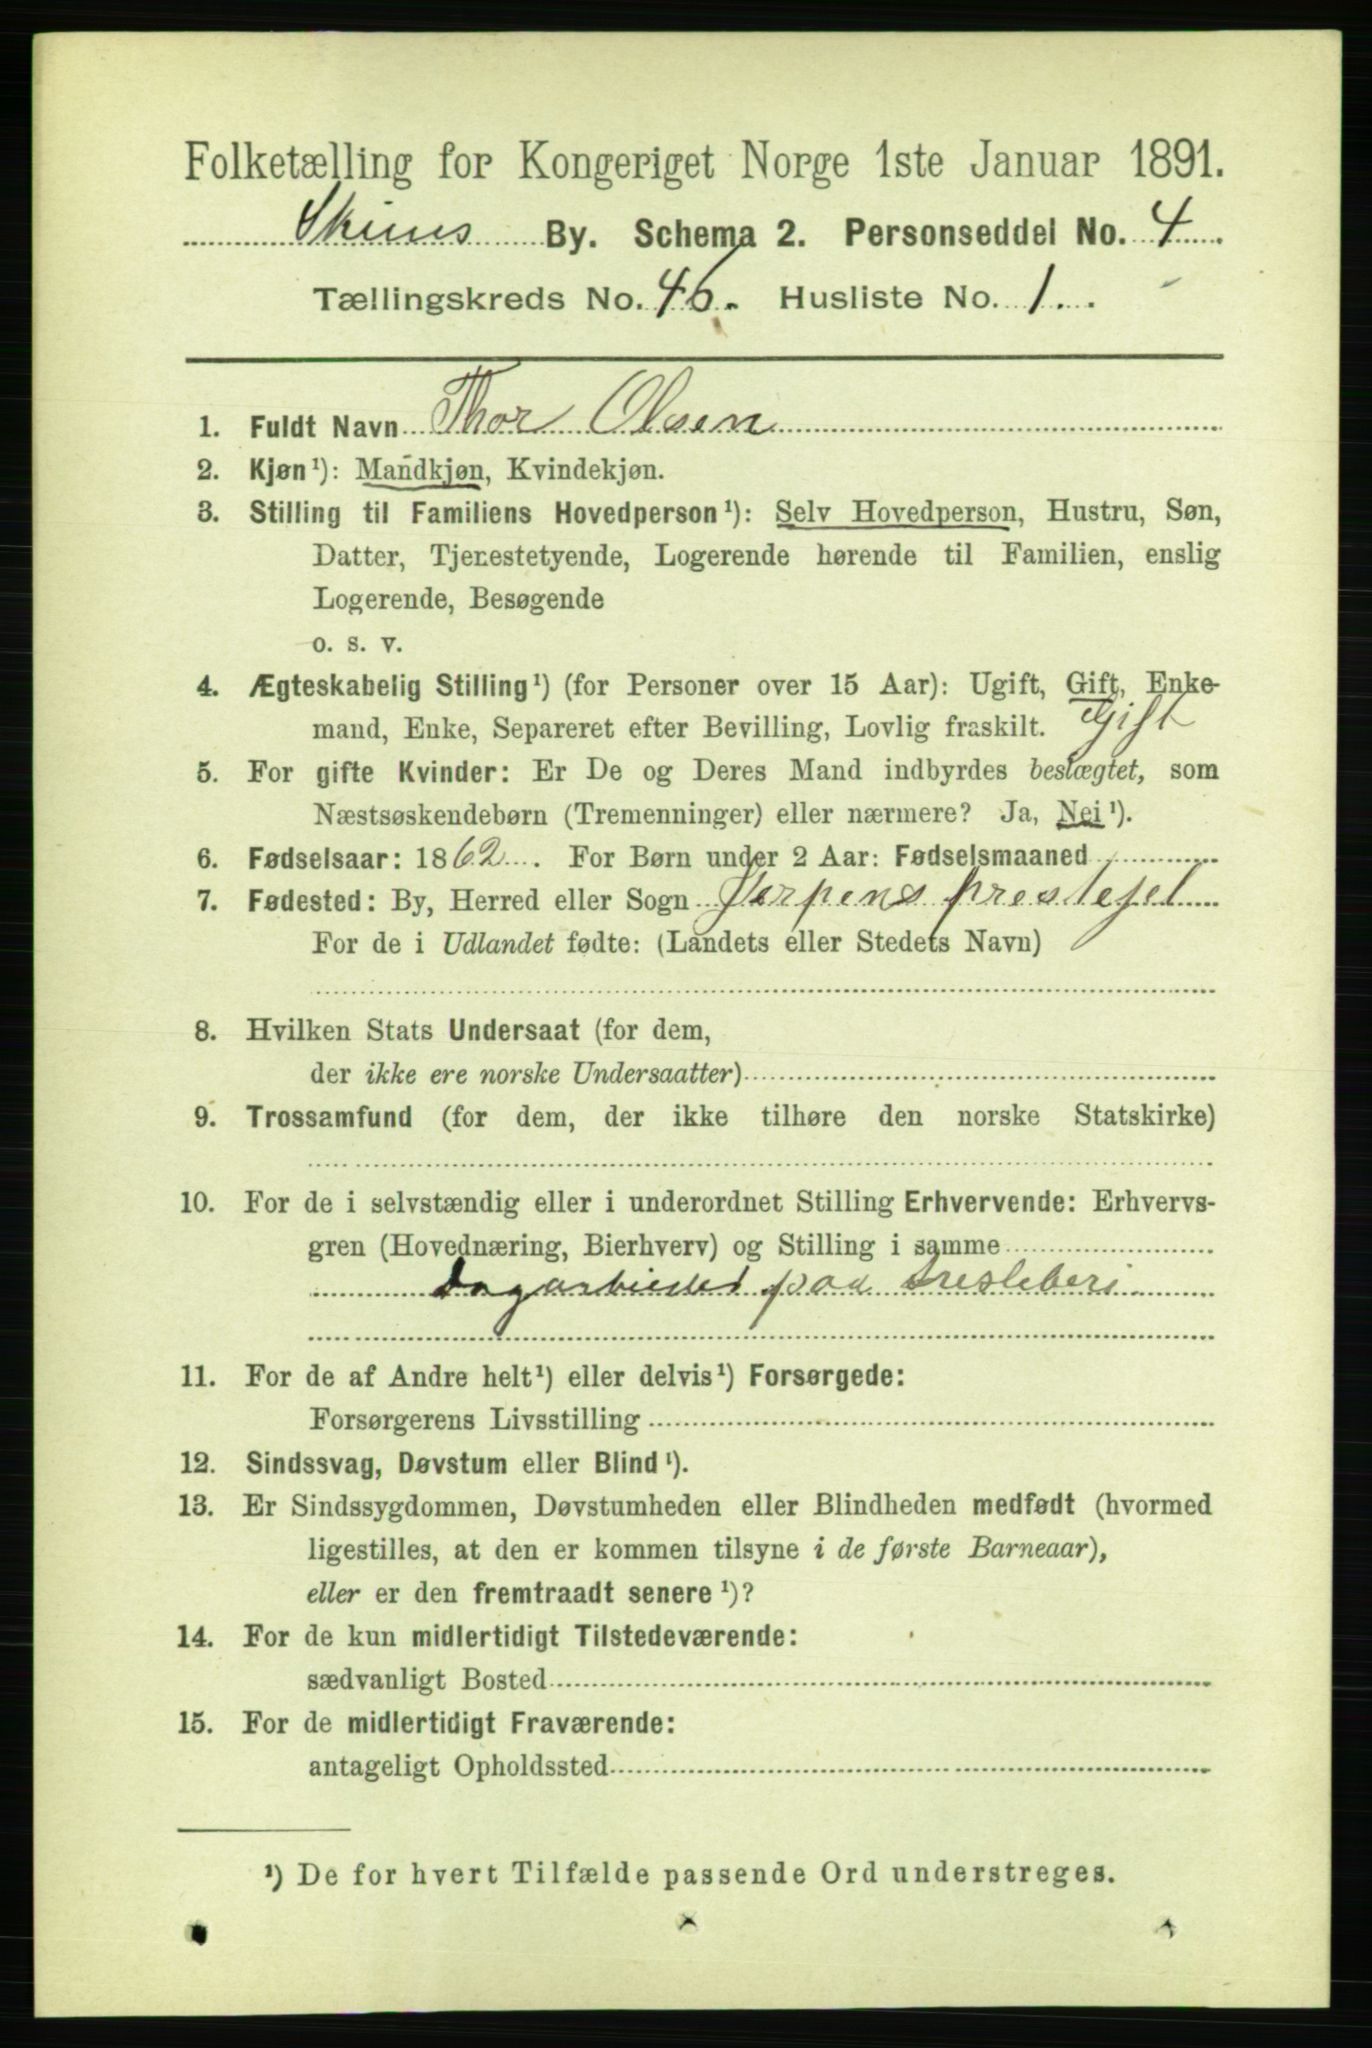 Folketælling for Kongeriget Norge 1ste Januar 1891.
Skiens By. Schema 2. Personseddel No. 4
Tællingskreds No. 46. Husliste No. 1.
1. Fuldt Navn Thor Olsen
2. Kjøn¹): Mandkjøn, Kvindekjøn.
3. Stilling til Familiens Hovedperson¹): Selv Hovedperson, Hustru, Søn,
Datter, Tjenestetyende, Logerende hørende til Familien, enslig
Logerende, Besøgende
o. s. v.
4. Ægteskabelig Stilling¹) (for Personer over 15 Aar): Ugift, Gift, Enke-
mand, Enke, Separeret efter Bevilling, Lovlig fraskilt. Gift
5. For gifte Kvinder: Er De og Deres Mand indbyrdes beslægtet, som
Næstsøskendebørn (Tremenninger) eller nærmere? Ja, Nei¹).
6. Fødselsaar: 1862. For Børn under 2 Aar: Fødselsmaaned
7. Fødested: By, Herred eller Sogn Jerpens prestejel
For de i Udlandet fødte: (Landets eller Stedets Navn)
8. Hvilken Stats Undersaat (for dem,
der ikke ere norske Undersaatter)
9. Trossamfund (for dem, der ikke tilhøre den norske Statskirke)
10. For de i selvstændig eller i underordnet Stilling Erhvervende: Erhvervs-
gren (Hovednæring, Bierhverv) og Stilling i samme
paa tresleberi
11. For de af Andre helt¹) eller delvis¹) Forsørgede:
Forsørgerens Livsstilling
12. Sindssvag, Døvstum eller Blind¹).
13. Er Sindssygdommen, Døvstumheden eller Blindheden medfødt (hvormed
ligestilles, at den er kommen tilsyne i de første Barneaar),
eller er den fremtraadt senere¹)?
14. For de kun midlertidigt Tilstedeværende:
sædvanligt Bosted
15. For de midlertidigt Fraværende:
antageligt Opholdssted
¹) De for hvert Tilfælde passende Ord understreges.